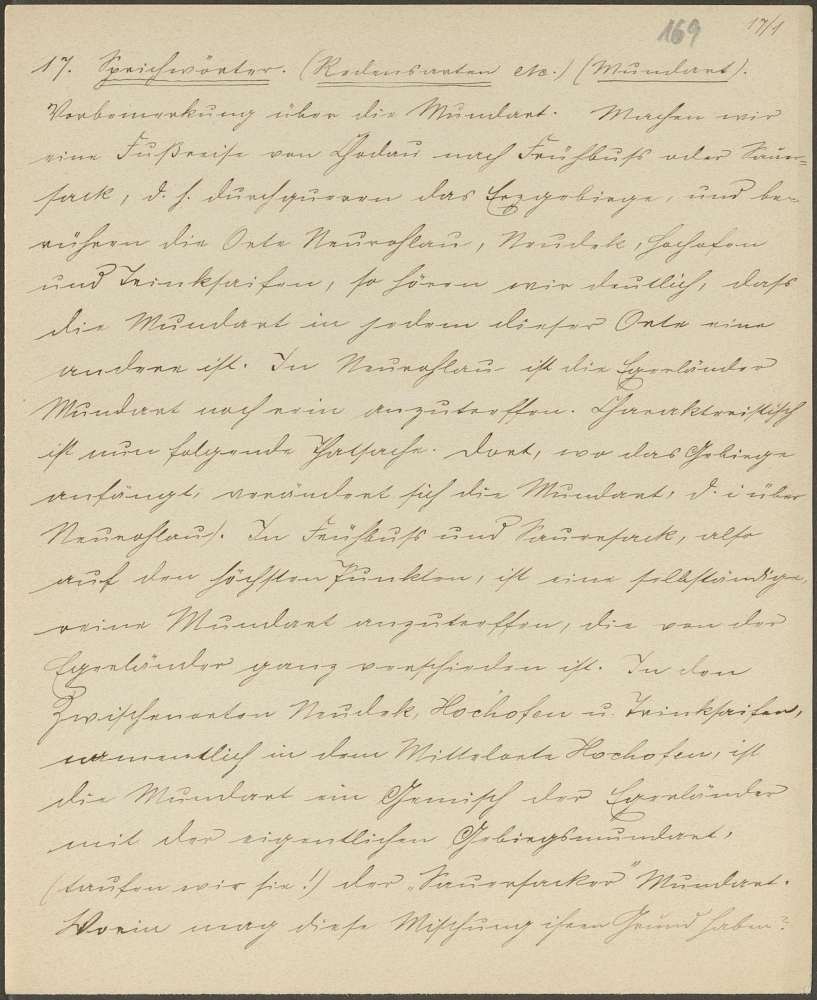 169 17/1
17. Sprichwörter. (Redensarten etc.) (Mundart).
Vorbemerkung über die Mundart. Machen wir
eine Fußreise von Chodau nach Frühbuß oder Sauer-
sack, d. h. durchqueren das Erzgebirge, und be-
rühren die Orte Neurohlau, Neudek, Hochofen
und Trinksaifen, so hören wir deutlich, dass
die Mundart in jedem dieser Orte eine
andere ist. In Neurohlau ist die Egerländer
Mundart noch rein anzutreffen. Charakteristisch
ist nun folgende Thatsache. Dort, wo das Gebirge
anfängt, verändert sich die Mundart, d. i über
Neurohlau). In Frühbuß und Sauersack, also
auf den höchsten Punkten, ist eine selbständige,
reine Mundart anzutreffen, die von der
Egerländer ganz verschieden ist. In den
Zwischenorten Neudek, Hochofen u. Trinksaifen,
namentlich in dem Mittelorte Hochofen, ist
die Mundart ein Gemisch der Egerländer
mit der eigentlichen Gebirgsmundart,
(taufen wir sie!) der „Sauersacker" Mundart.
Worin mag diese Mischung ihren Grund haben?